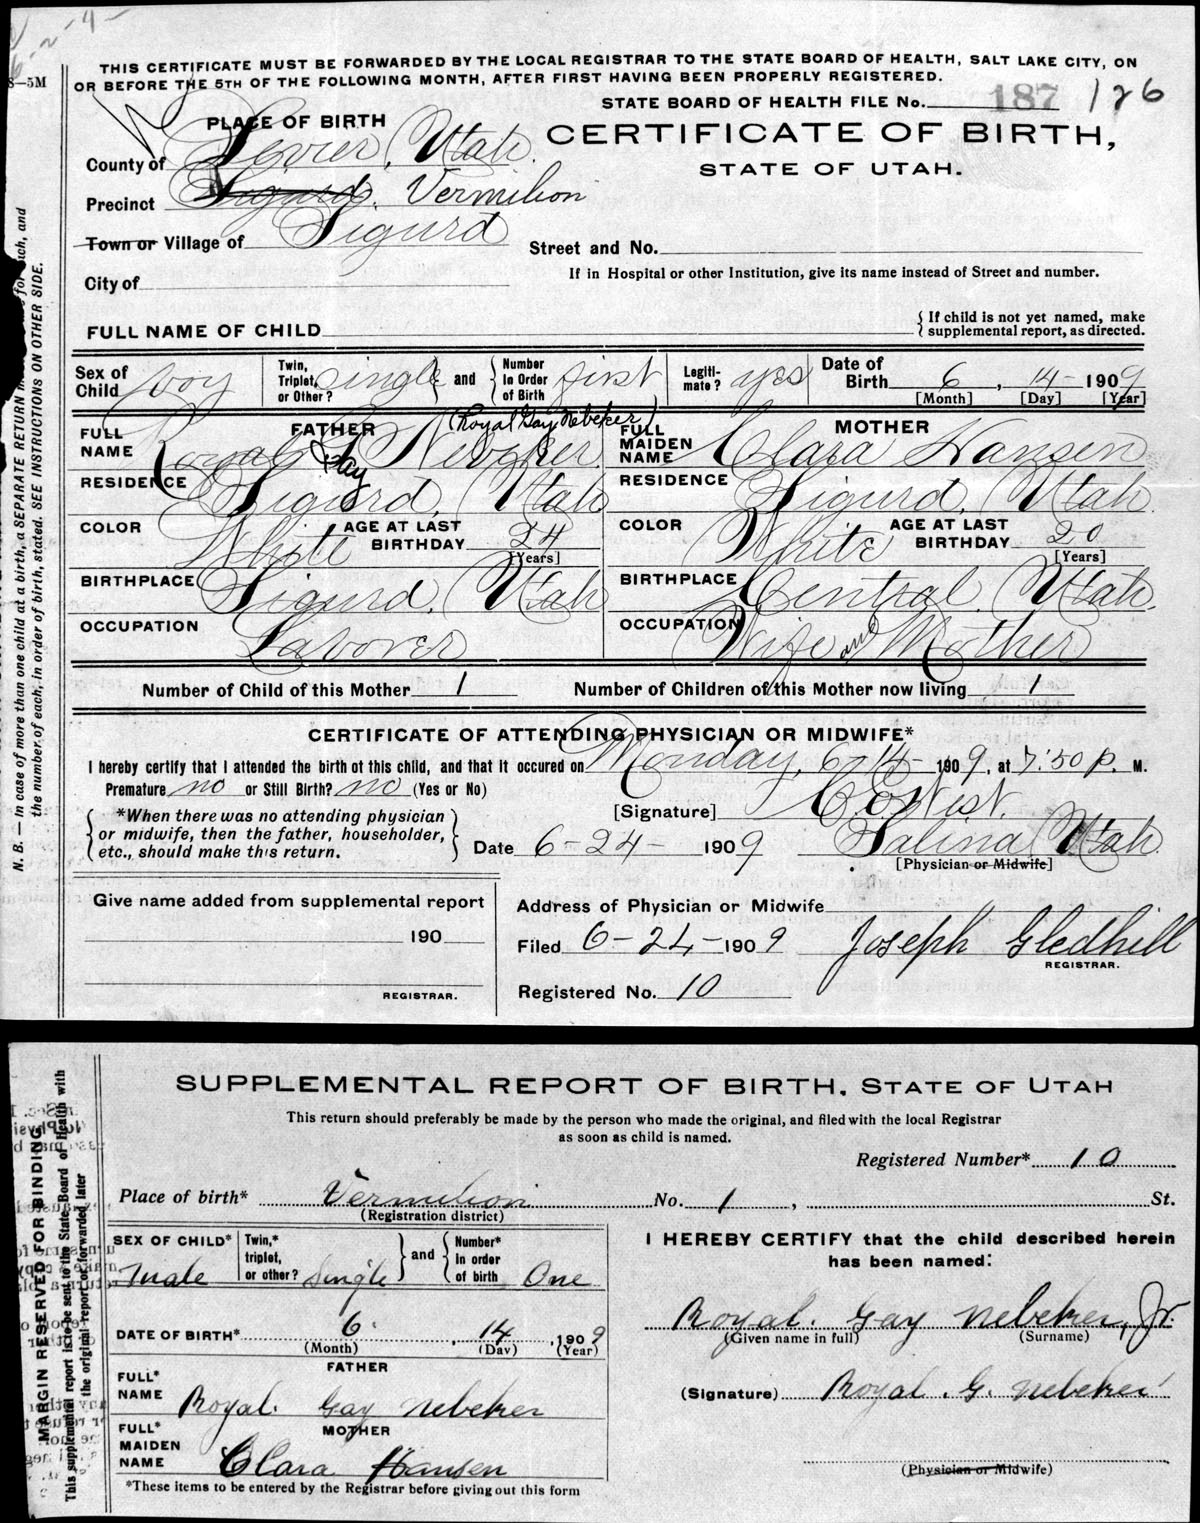 8—5M
THIS CERTIFICATE MUST BE FORWARDED BY THE LOCAL REGISTRAR TO THE STATE BOARD OF HEALTH, SALT LAKE CITY, ON
OR BEFORE THE 5TH OF THE FOLLOWING MONTH, AFTER FIRST HAVING BEEN PROPERLY REGISTERED.
STATE BOARD OF HEALTH FILE No. 187 126
PLACE OF BIRTH
CERTIFICATE OF BIRTH,
STATE OF UTAH.
County of Sevier, Utah.
Precinct Sigurd. Vermilion
Town or Village of Sigurd
Street and No.
If in Hospital or other Institution, give its name instead of Street and number.
City of
FULL NAME OF CHILD
{ If child is not yet named, make
supplemental report, as directed.
Sex of Child boy
Twin, Triplet, or Other? single and Number in Order of Birth first
Legiti-mate? yes
Date of Birth 6, 14 1909
[Month] [Day] [Year]
FATHER
(Royal Gay Nebeker)
FULL NAME Royal G Nebeker
Gay
MOTHER
FULL MAIDEN NAME Clara Hansen
RESIDENCE Sigurd, Utah
RESIDENCE Sigurd, Utah
COLOR White AGE AT LAST BIRTHDAY 24 [Years]
COLOR White AGE AT LAST BIRTHDAY 20 [Years]
BIRTHPLACE Sigurd, Utah
BIRTHPLACE Central, Utah.
OCCUPATION Laborer
OCCUPATION Wife and Mother
Number of Child of this Mother 1 Number of Children of this Mother now living 1
CERTIFICATE OF ATTENDING PHYSICIAN OR MIDWIFE*
I hereby certify that I attended the birth of this child, and that it occured on Monday, 6-14- 1909, at 7:50 P. M.
Premature no or Still Birth? no (Yes or No)
*When there was no attending physician
or midwife, then the father, householder,
etc., should make this return.
[Signature]
Date 6-24- 1909
Salina Utah
[Physician or Midwife]
Give name added from supplemental report
190
REGISTRAR.
Address of Physician or Midwife
Filed 6-24-1909 Joseph Gledhill
REGISTRAR.
Registered No. 10
N. B.—In case of more than one child at a birth, a SEPARATE RETURN for each, and
the number of each, in order of birth, stated. SEE INSTRUCTIONS ON OTHER SIDE.
SUPPLEMENTAL REPORT OF BIRTH, STATE OF UTAH
This return should preferably be made by the person who made the original, and filed with the local Registrar
as soon as child is named.
Registered Number* 10
Place of birth* Vermilion No. 1, St.
(Registration district)
SEX OF CHILD* Male
Twin,* triplet, or other? Single and Number* in order of birth One
DATE OF BIRTH* 6, 14, 1909
(Month) (Day) (Year)
FATHER
FULL* NAME Royal. Gay Nebeker
MOTHER
FULL* MAIDEN NAME Clara Hansen
*These items to be entered by the Registrar before giving out this form
I HEREBY CERTIFY that the child described herein
has been named:
Royal. Gay Nebeker, Jr.
(Given name in full) (Surname)
(Signature) Royal. G. Nebeker
(Physician or Midwife)
MARGIN RESERVED FOR BINDING
This supplemental report is to be sent to the State Board of Health with
the original report or forwarded later